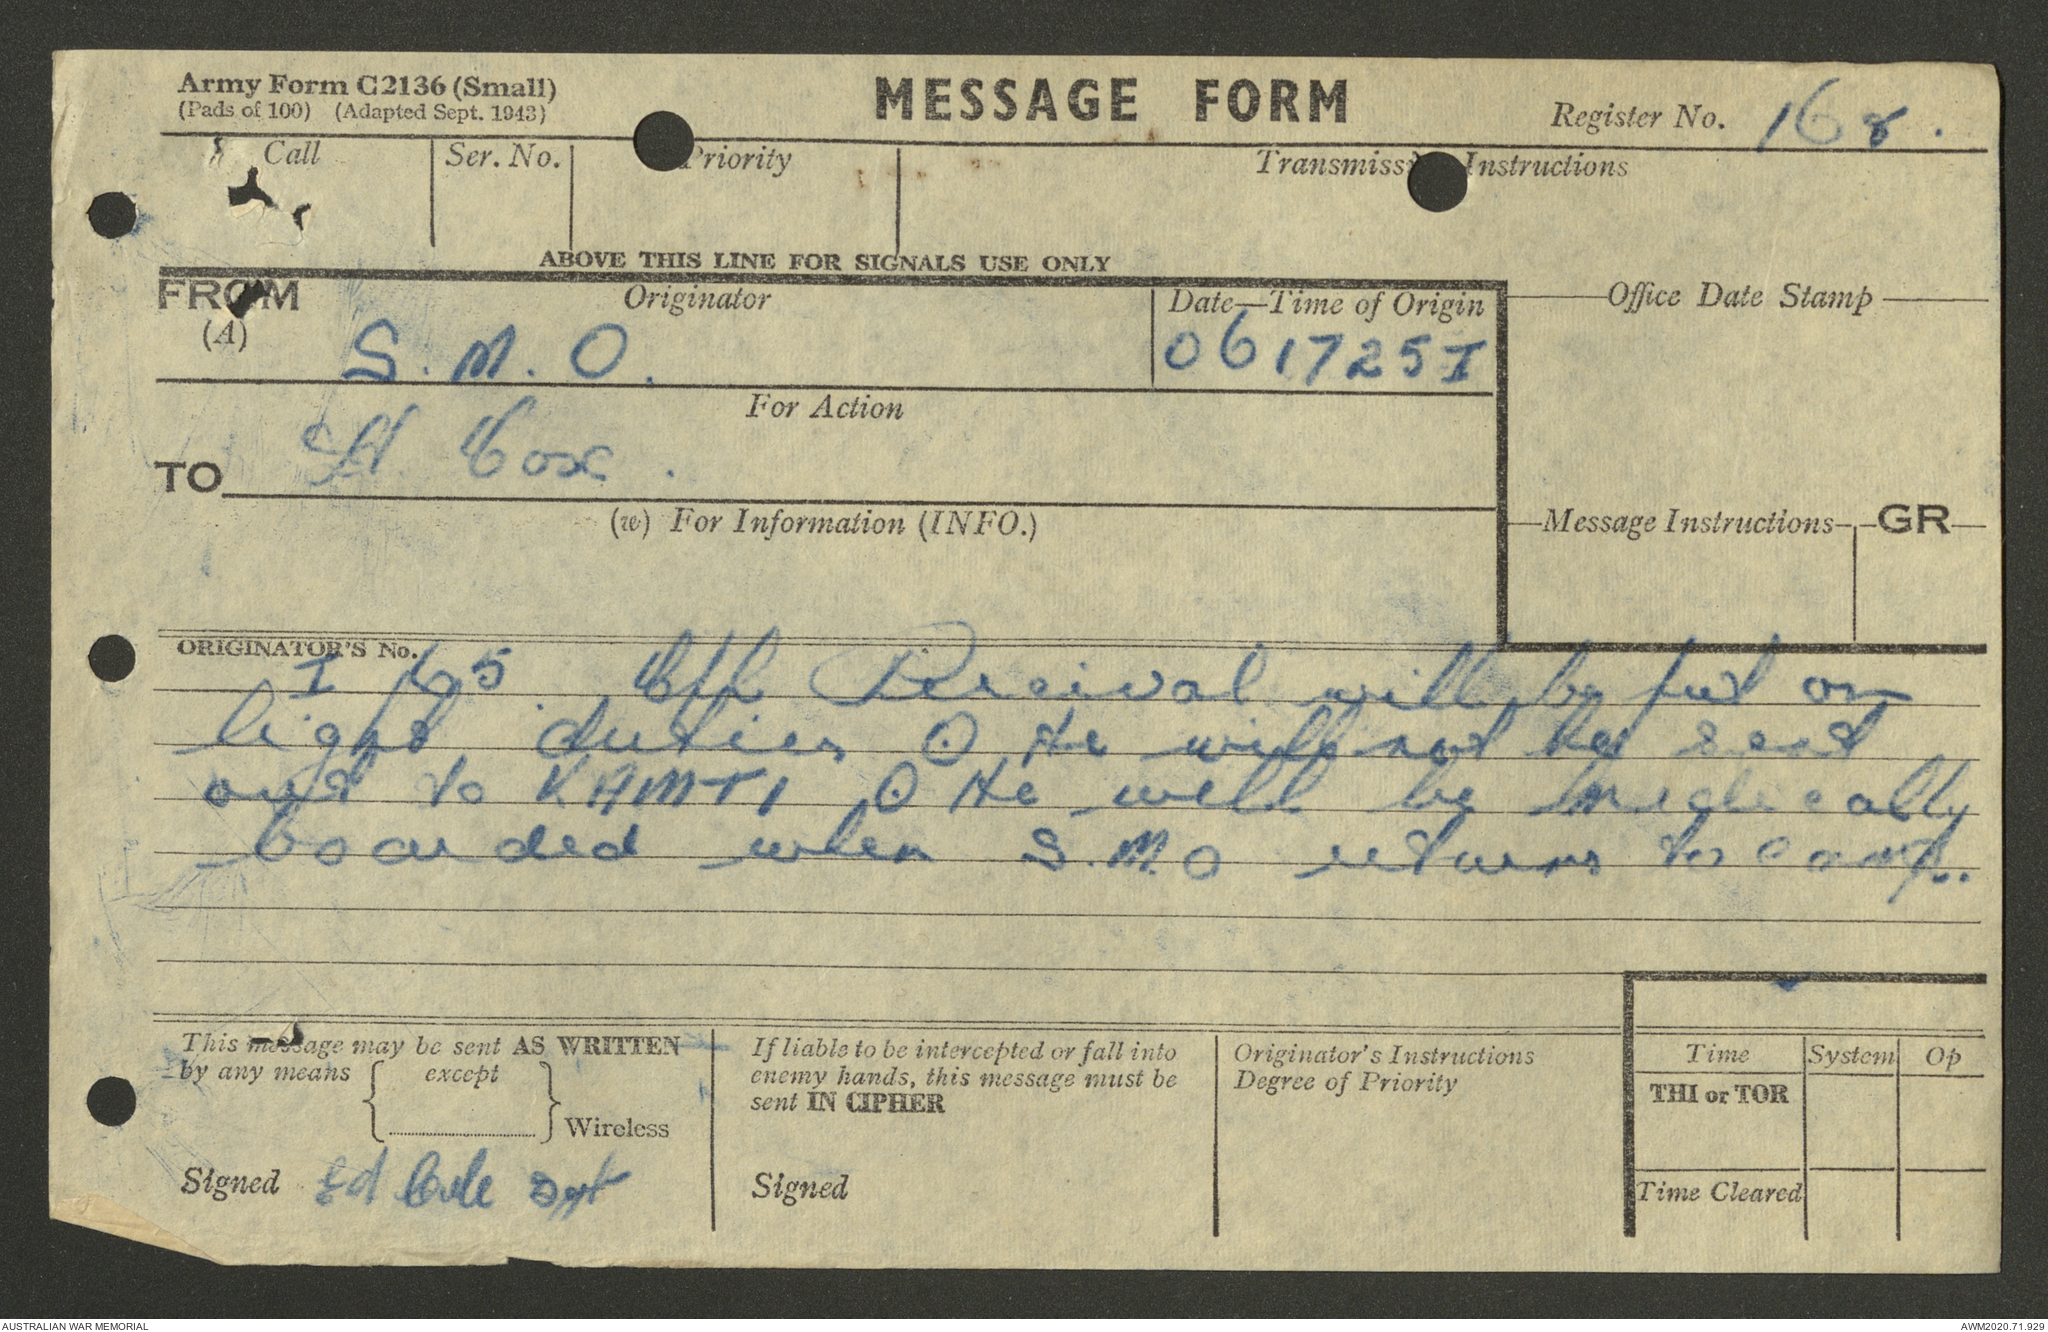 Army Form C2136 (Small)
(Pads of 100) (Adapted Sept. 1943)
MESSAGE FORM
Register No. 168.
Call
Ser. No.
Priority
Transmissi Instructions
ABOVE THIS LINE FOR SIGNALS USE ONLY
FROM
(A)
Originator
Date—Time of Origin
Office Date Stamp
S.M.O.
061725I
For Action
TO Lt Cox.
(w) For Information (INFO.)
Message Instructions
GR
ORIGINATOR'S No.
I 65. Cpl Percival will be put on
light duties O He will not be sent
out to KAMTI O He will be medically
boarded when S.M.O returns to camp.
This message may be sent AS WRITTEN
by any means except
Wireless
Signed Sgt
If liable to be intercepted or fall into
enemy hands, this message must be
sent IN CIPHER
Signed
Originator's Instructions
Degree of Priority
Time
System
Op
THI or TOR
Time Cleared
AUSTRALIAN WAR MEMORIAL
AWM2020.71.929